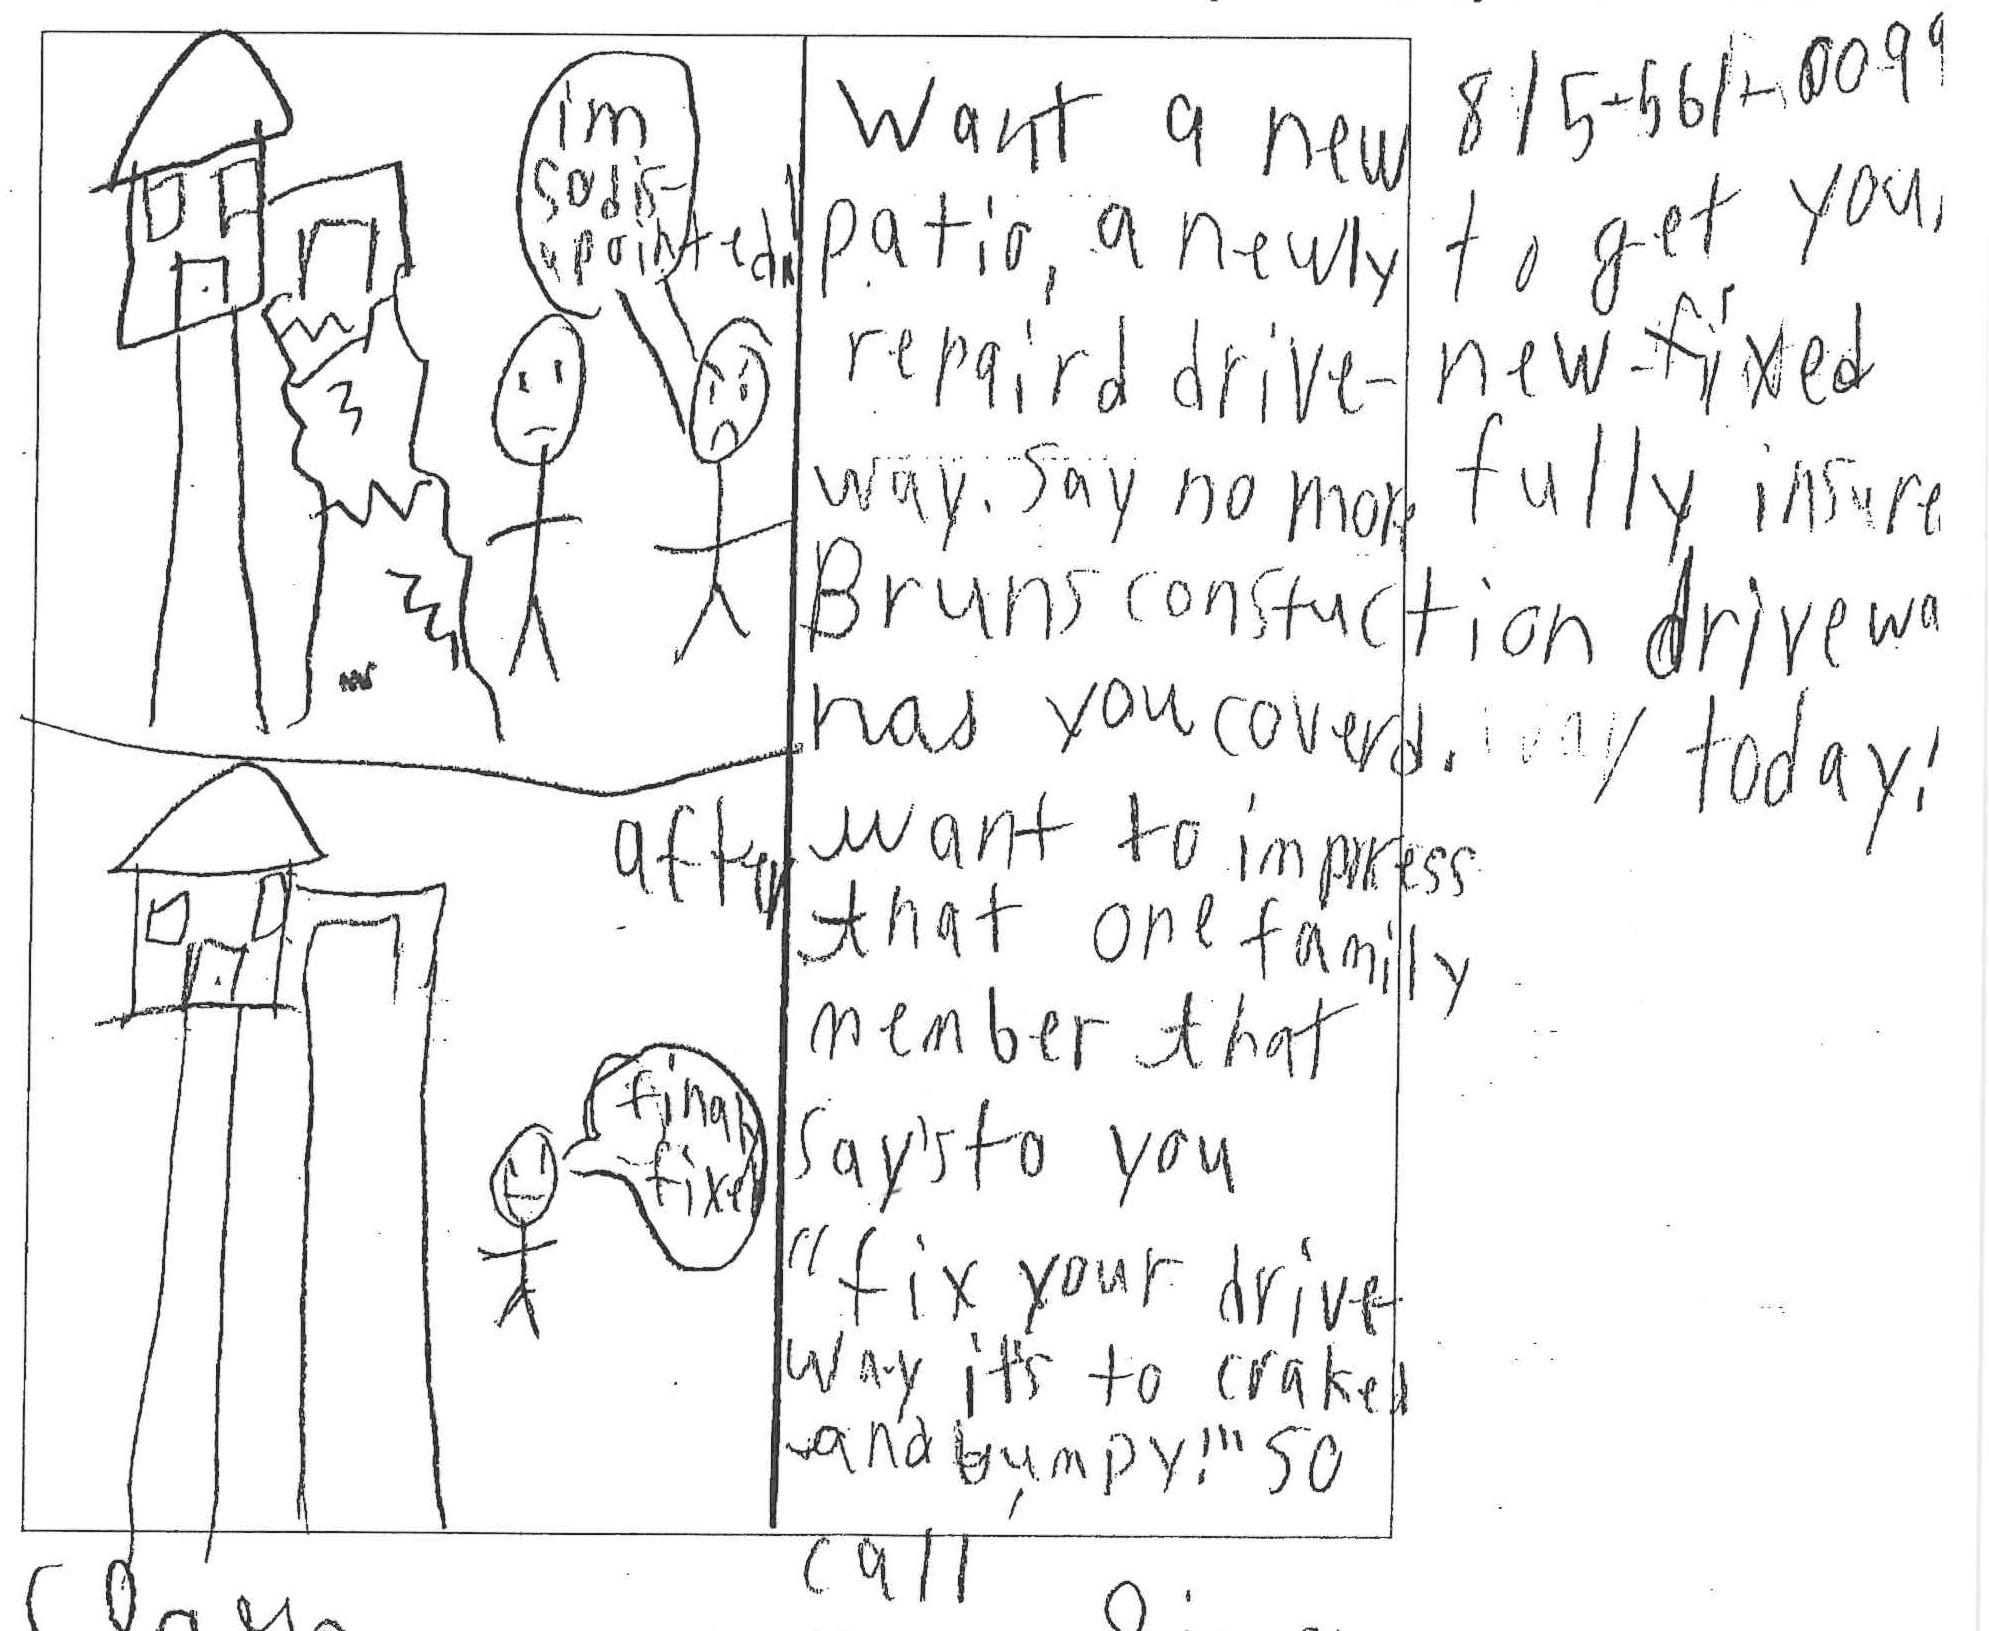 im
so dis-
apointed!
after
final
fixed
Want a new
patio, a newly
repaird drive-
way. Say no more
Bruns constuction
has you coverd.
want to impress
that one familly
member that
say's to you
"fix your drive-
way it's to craked
and bumpy!" so
call
815-561-0099
to get you,
new-fixed
fully insure
drivewa
today!